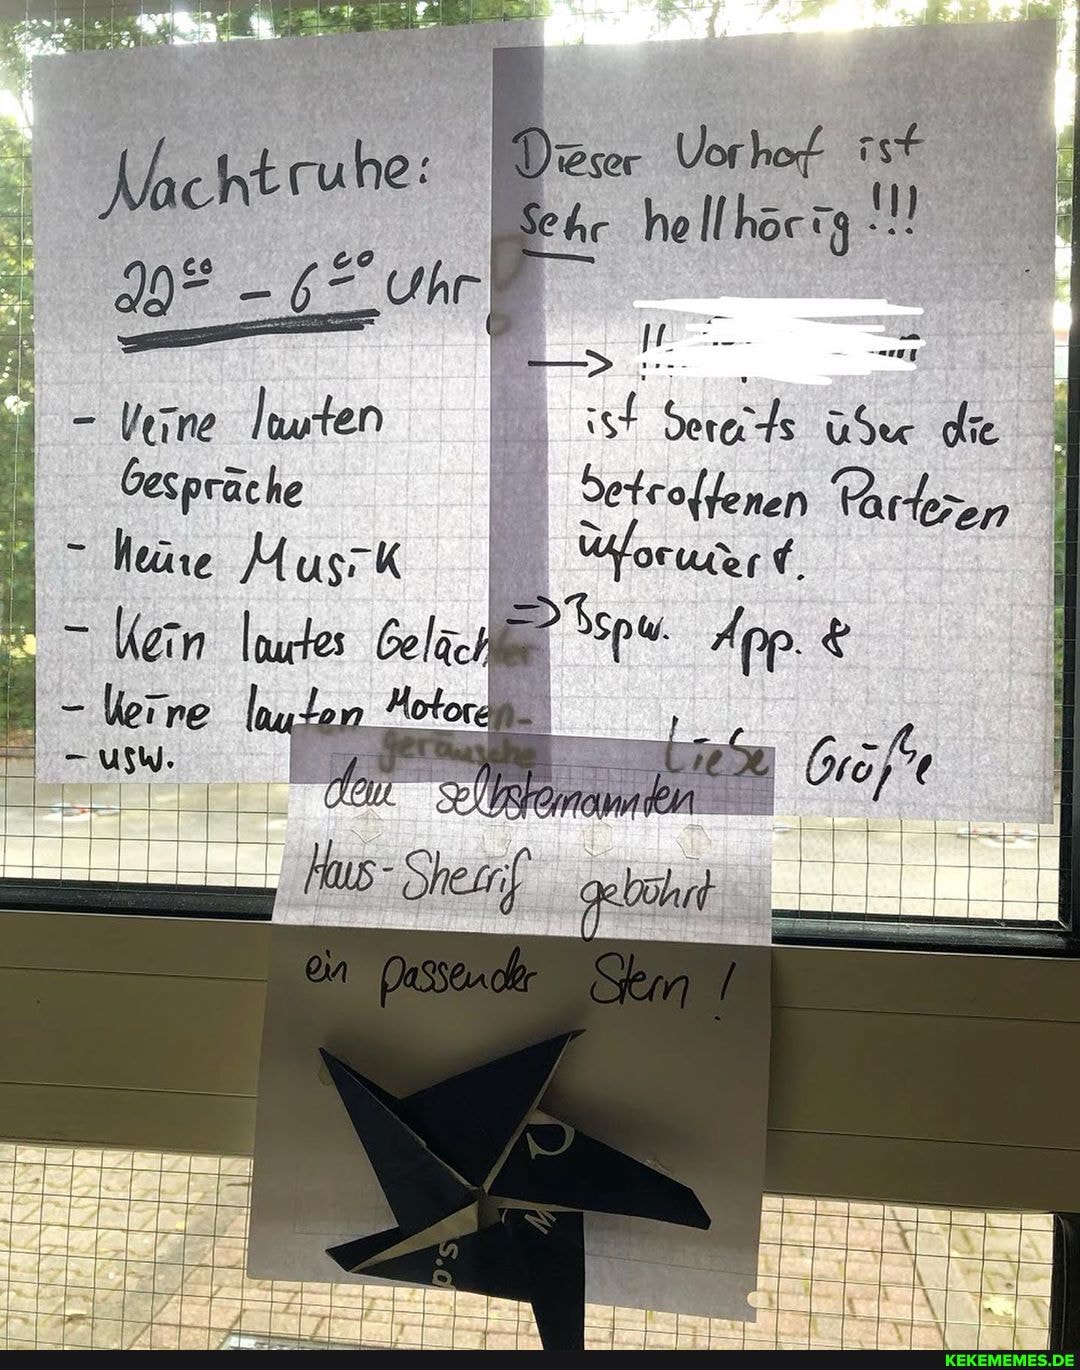 Nachtruhe:
22⁰⁰ – 6⁰⁰ Uhr
- Keine lauten
Gespräche
- Keine Musik
- Kein lautes Gelächter
- Keine lauten Motoren-
geräusche
- usw.
Dieser Vorhof ist
sehr hellhörig!!!
→
ist bereits über die
betroffenen Parteien
informiert.
=> Bspw. App. 8
Liebe Grüße
dem selbsternannten
Haus-Sherrif gebührt
ein passender Stern!
KEKEMEMES.DE